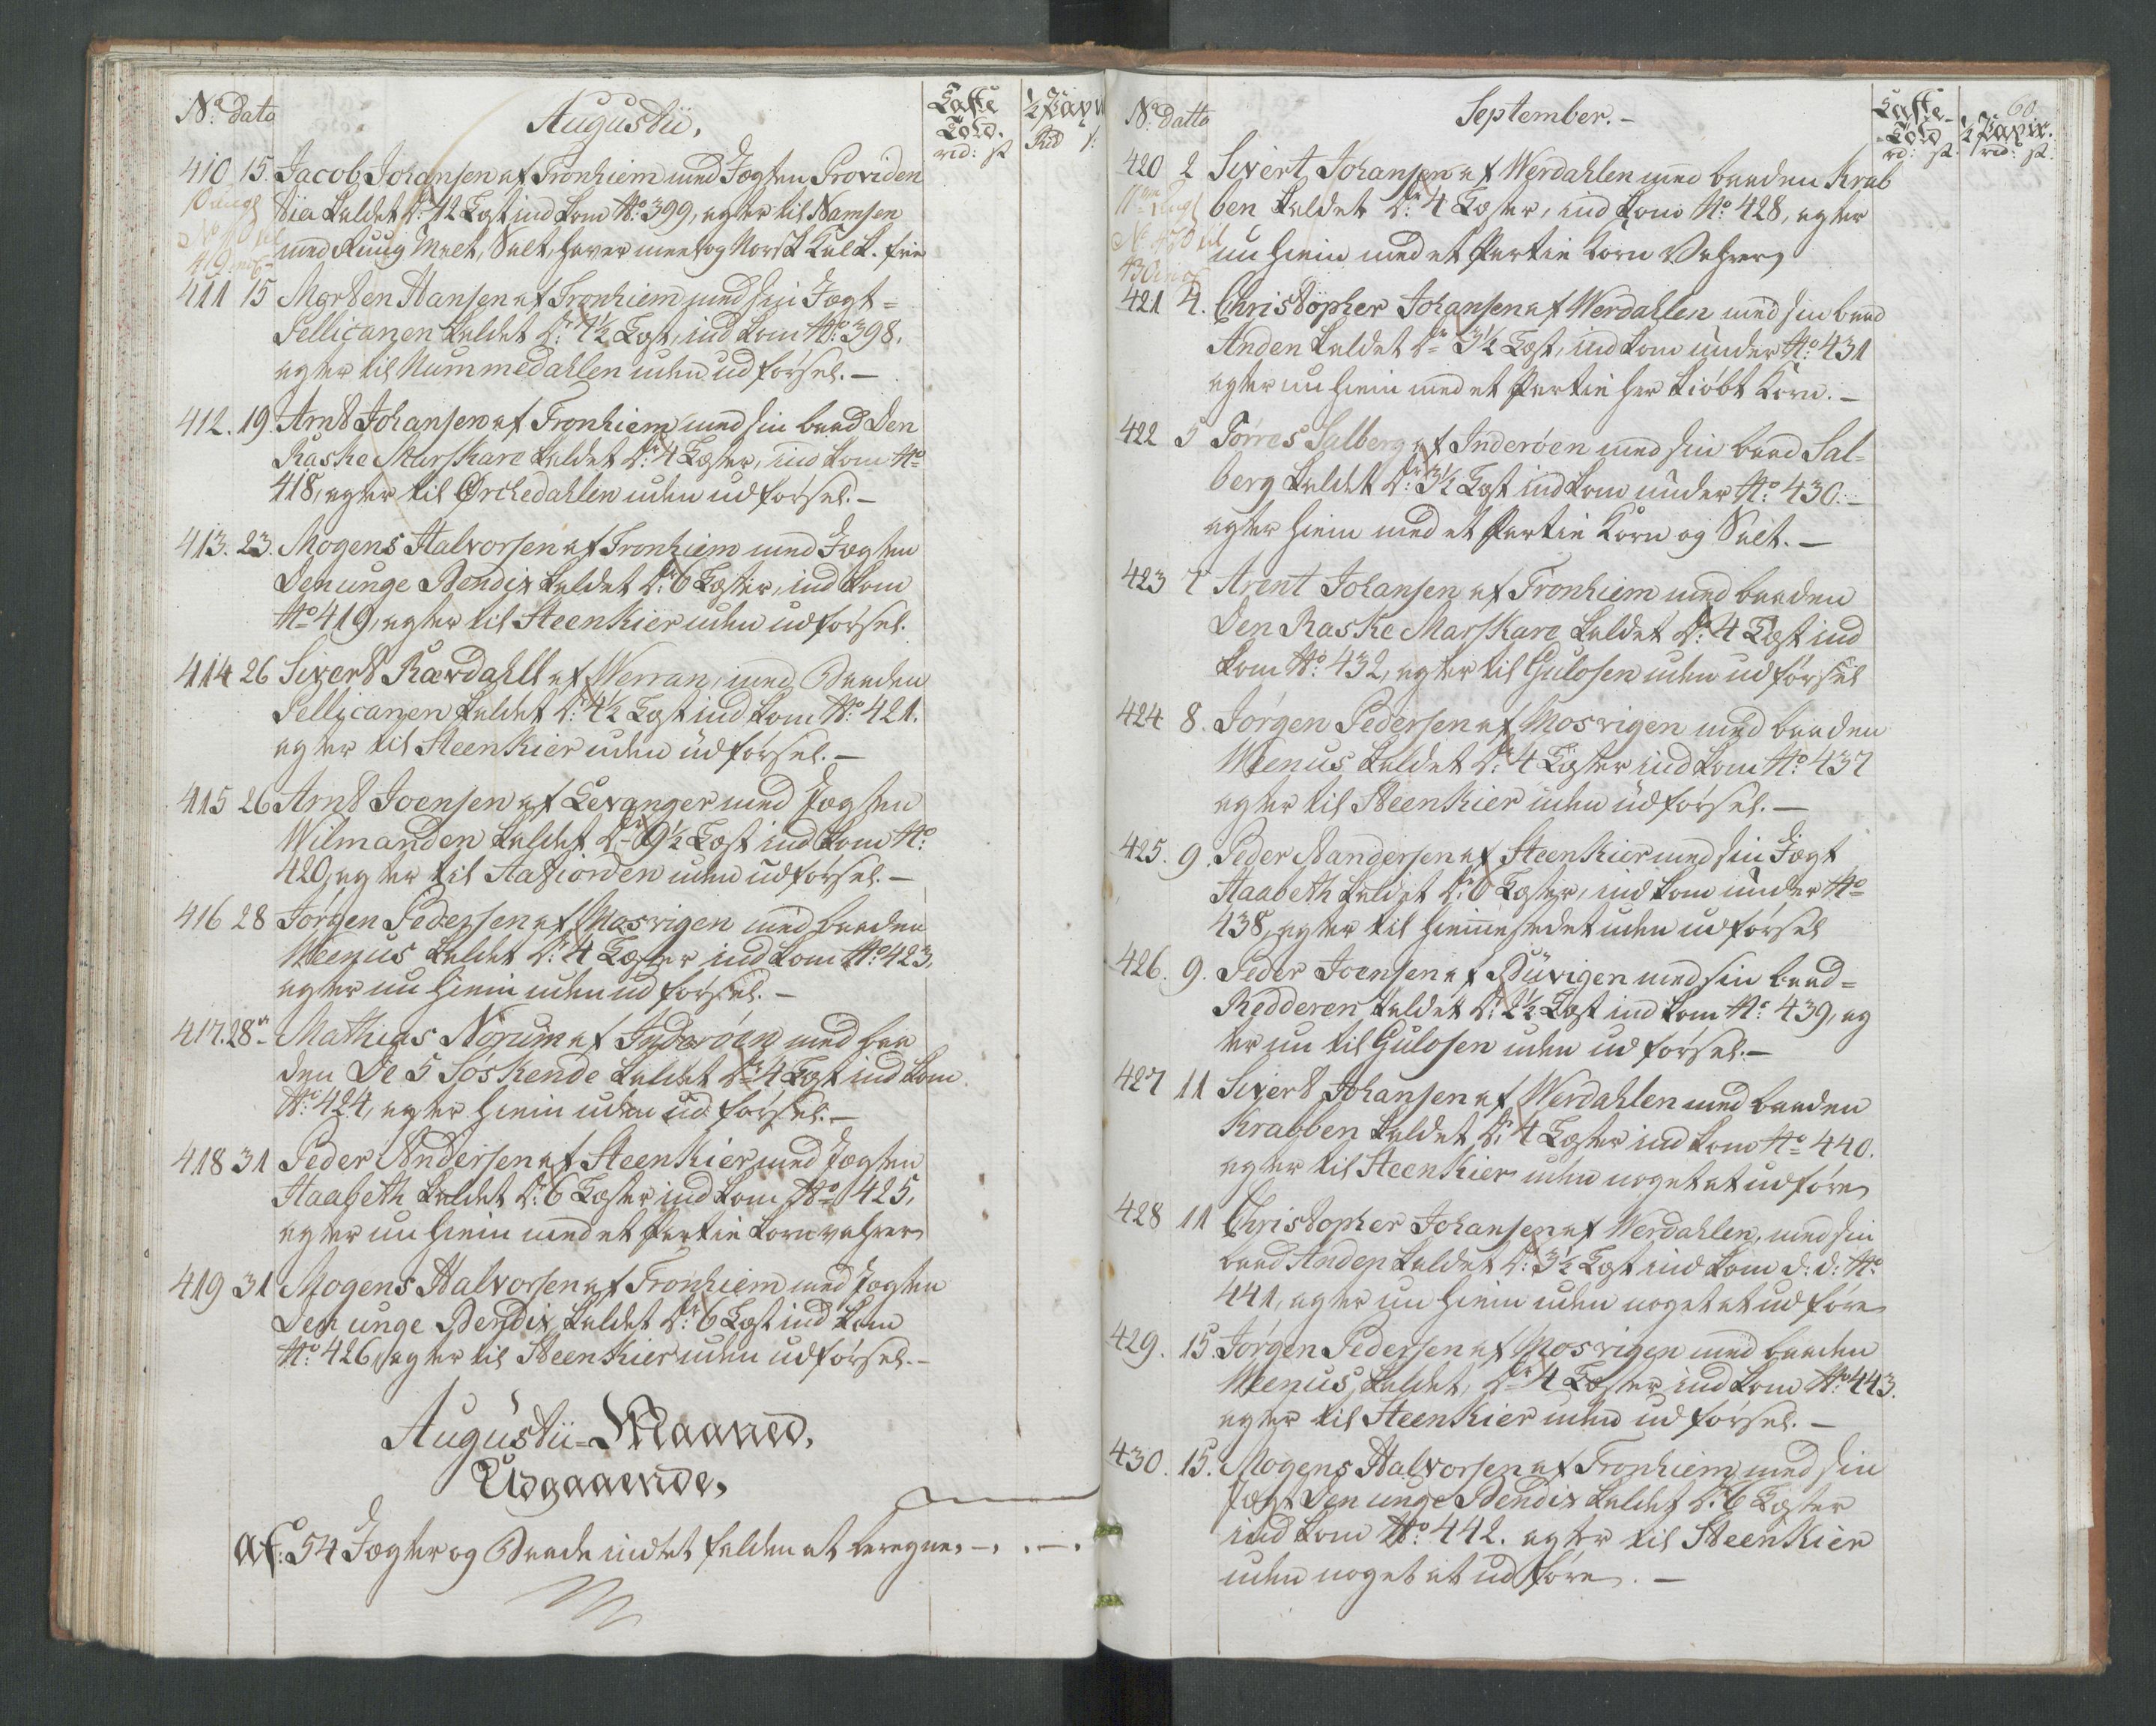 No: dato
Augustii,
Laste
Told.
rd: s
½ Papir
Rd s:
410 15. Jacob Johansen af Tronhiem med Jægten Providen
tia kaldet Dr: 12 Læst ind kom No: 399, agter til Namsen
med Ruug Meel, Salt, haver meel og Norsk Kalk. frie
419
411 15 Morten Hansen af Tronhiem med sin Jægt=
Pellicanen kaldet Dr: 4½ Læst, ind kom No: 398.
agter til Nummedahlen uden udførsel. —
412. 19. Arnt Johansen af Tronhiem med sin baad Den
Raske Marskare kaldet Dr: 4 Læster, ind kom No
418, agter til Ørckedahlen uden udførsel. —
413. 23. Mogens Halvorsen af Tronhiem med Jægten
Den unge Bendix kaldet Dr: 6 Læster, ind kom
No 419, agter til Steenkier uden udførsel.
414 26 Sivert Rævdahll af Werran, med Baaden
Pellicanen kaldet Dr: 4½ Læst ind kom No: 421.
agter til Steenkier uden udførsel. —
415 26 Arnt Joensen af Levanger med Jægten
Wilmanden kaldet Dr: 9½ Læst ind kom No:
420, agter til Aafiorden uden udførsel. —
416 28 Jørgen Pedersen af Mosvigen med baaden
Weenus kaldet Dr: 4 Læster ind kom No: 423,
agter nu hiem uden udførsel. —
417. 28 Mathias Norum af Inderøen med baa
den De 5 Søskende kaldet Dr: 4 Læst ind kom
No: 424, agter hiem uden udførsel. —
418 31 Peder Andersen af Steenkier med Jægten
Haabeth kaldet Dr: 6 Læster ind kom No: 425,
agter nu hiem med et Partie Kornvahrer
419 31 Mogens Halvorsen af Tronhiem med Jægten
Den unge Bendix kaldet Dr: 6 Læst ind kom
No: 426, agter til Steenkier uden udførsel. —
Augustii=Maaned,
Udgaaende,
af: 54 Jægter og Baade indtet falden at beregne. —. . —.
60
No: datto
September. —
Laste-
Told
rd: s.
½ Papir.
rd: s:
420 2 Sivert Johansen af Werdahlen med baaden Krab
ben kaldet Dr: 4 Læster, ind kom No: 428, agter
nu hiem med et Partie Korn Vahrer
430
421 4. Christopher Johansen af Werdahlen med sin baad
Anden kaldet Dr: 3½ Læst, ind kom under No: 431
agter nu hiem med et Partie her kiøbt Korn. —
422 5 Torres Salberg af Inderøen med sin baad Sal=
berg kaldet Dr: 3½ Læst ind kom under No: 430. —
agter hiem med et Partie Korn og Salt. —
423 7 Arent Johansen af Tronhiem med baaden
Den Raske Marskare kaldet Dr: 4 Læst ind
kom No: 432, agter til Gulosen uden udførsel
424 8. Jørgen Pedersen af Mosvigen med baaden
Weenus kaldet Dr: 4 Læster ind kom No: 437
agter til Steenkier uden udførsel. —
425. 9. Peder Andersen af Steenkier med sin Jægt
Haabeth kaldet Dr: 6 Læster, ind kom under No
438, agter til hiemmestedet uden udførsel
426. 9. Peder Joensen af Buvigen med sin baad=
Redderen kaldet Dr: 2½ Læst ind kom No: 439, ag
ter nu til Gulosen uden udførsel. —
427 11 Sivert Johansen af Werdahlen med baaden
Krabben kaldet Dr: 4 Læster ind kom No: 440.
agter til Steenkier uden noget at udføre
428 11 Christopher Johansen af Werdahlen, med sin
baad Anden kaldet Dr: 3½ Læst ind kom d: d: No:
441, agter nu hiem uden noget at udføre
429. 15. Jørgen Pedersen af Mosvigen med baaden
Weenus kaldet, Dr: 4 Læster ind kom No: 443.
agter til Steenkier uden udførsel. —
430. 15. Mogens Halvorsen af Tronhiem med sin
Jægt Den unge Bendix kaldet Dr: 6 Læster
ind kom No: 442. agter til Steenkier
uden noget at udføre. —